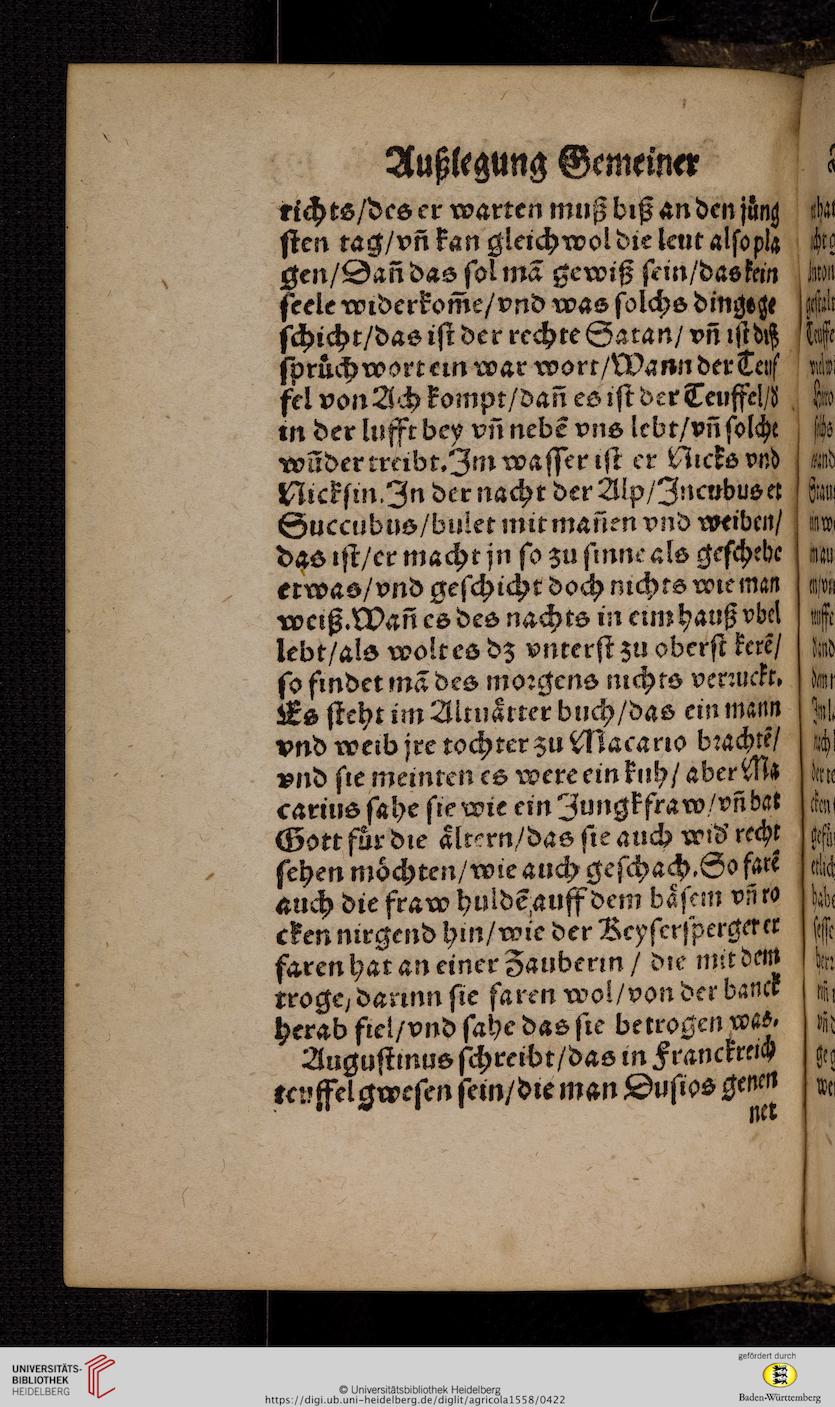 Außlegung Gemeiner
richts/des er warten muß biß an den jüng
sten tag/vñ kan gleichwol die leut also pla
gen/Dañ das sol mã gewiß sein/das kein
seele widerkom̃e/vnd was solchs dings ge
schicht/das ist der rechte Satan/ vñ ist diß
sprůchwort ein war wort/Wann der Teuf
fel von Ach kompt/dañ es ist der Teuffel/d̕
in der lufft bey vñ nebẽ vns lebt/vñ solche
wũder treibt. Im wasser ist er Nicks vnd
Nicksin. In der nacht der Alp/Incubus et
Succubus/bulet mit mañen vnd weiben/
das ist/er macht jn so zu sinne als geschehe
etwas/vnd geschicht doch nichts wie man
weiß. Wañ es des nachts in eim hauß vbel
lebt/als wolt es dz vnterst zu oberst kerẽ/
so findet mã des morgens nichts verruckt.
Es steht im Altuåtter buch/das ein mann
vnd weib jre tochter zu Macario brachtẽ/
vnd sie meinten es were ein kuh/ aber Ma
carius sahe sie wie ein Jungkfraw/vñ bat
Gott für die åltern/das sie auch wid̕ recht
sehen möchten/wie auch geschach. So farẽ
auch die fraw huldẽ auff dem båsem vñ ro
cken nirgend hin/wie der Keysersperger er
faren hat an einer Zauberin / die mit dem
troge/darinn sie faren wol/von der banck
herab fiel/vnd sahe das sie betrogen was.
Augustinus schreibt/das in Franckreich
teuffel gwesen sein/die man Dusios genen
net
UNIVERSITÄTS-
BIBLIOTHEK
HEIDELBERG
© Universitätsbibliothek Heidelberg
https://digi.ub.uni-heidelberg.de/diglit/agricola1558/0422
gefördert durch
Baden-Württemberg